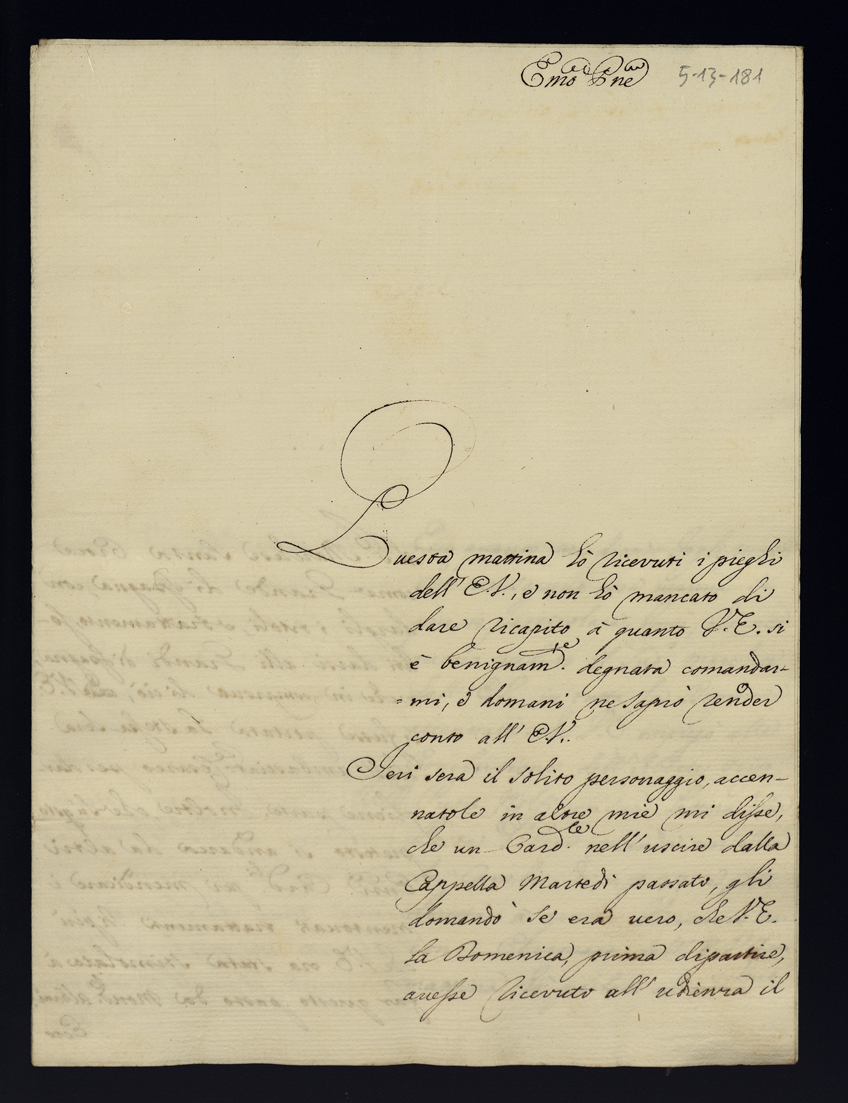 Emo ed Pne 5-13-181
Questa mattina hò ricevuti i pieghi
dell' E.V., e non hò mancato di
dare ricapito à quanto V.E. si
è benignam.te degnata comandar-
=mi, e domani ne saprò render
conto all' E.V..
Jeri sera il solito personaggio, accen-
natole in altre mie mi disse,
che un Card.le nell' uscire dalla
Cappella Martedì passato, gli
domandò se era vero, che V.E.
la Domenica, prima di partire,
avesse ricevuto all' udienza il